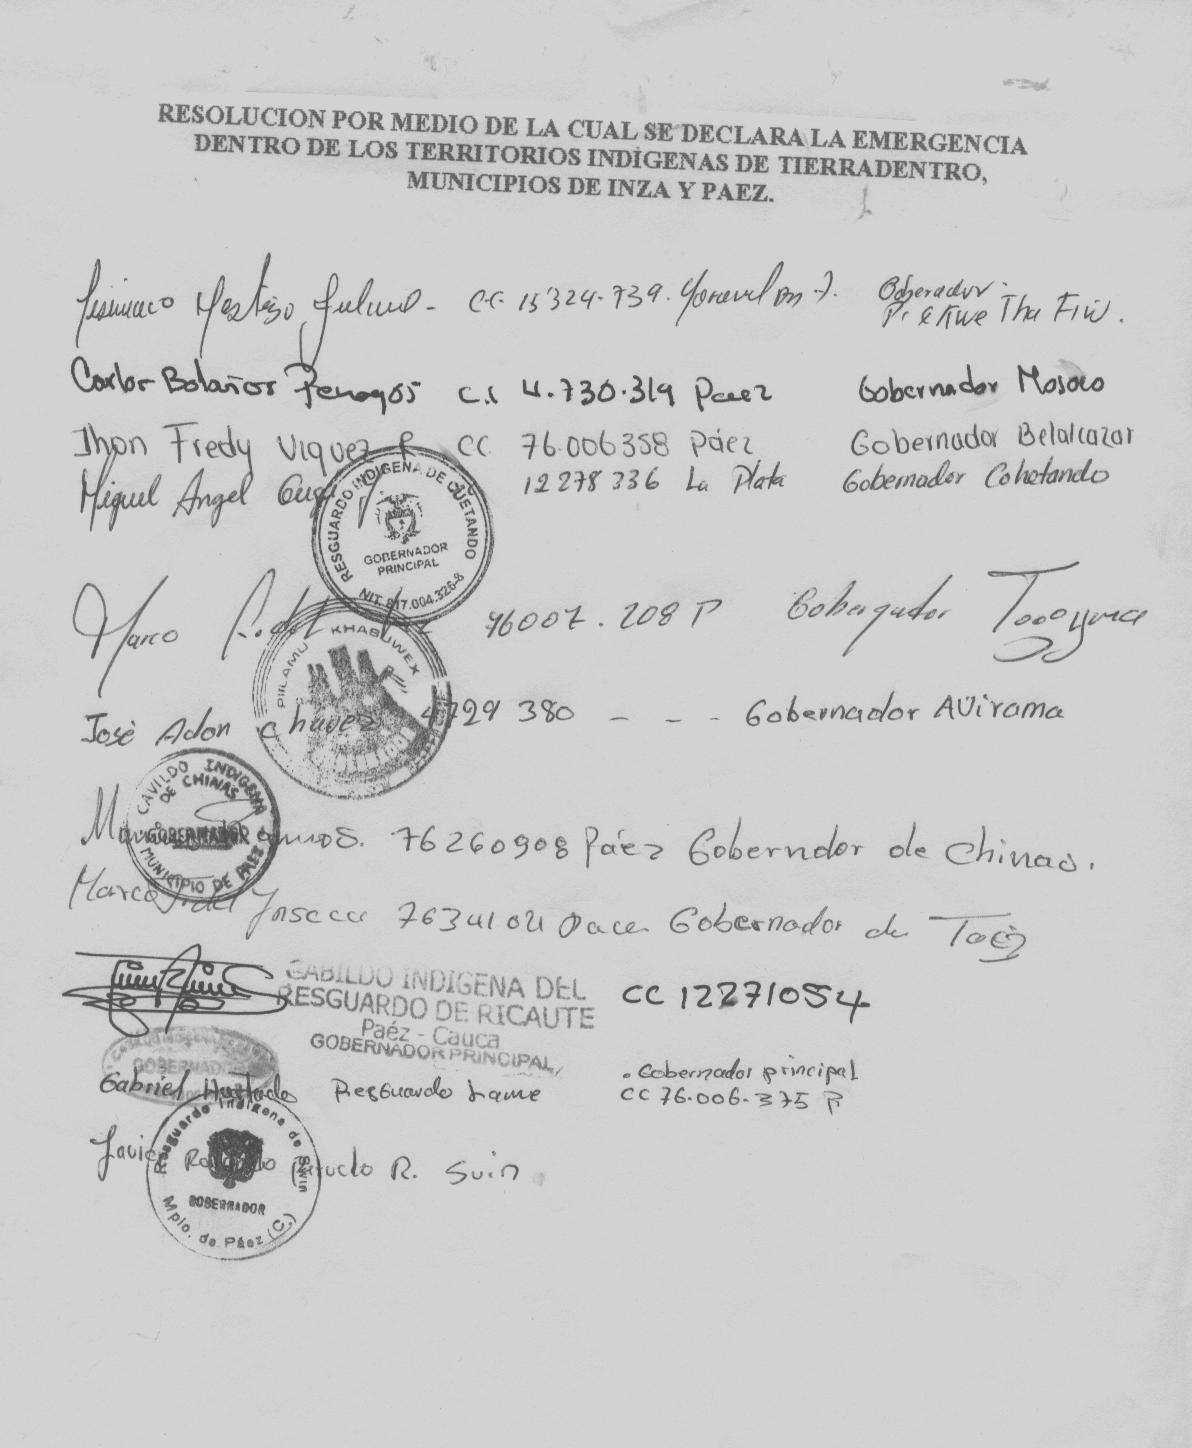 RESOLUCION POR MEDIO DE LA CUAL SE DECLARA LA EMERGENCIA
DENTRO DE LOS TERRITORIOS INDÍGENAS DE TIERRADENTRO,
MUNICIPIOS DE INZA Y PAEZ.
C.C. 15'324.739. Gobernador.
Tha Fiw.
Carlos Bolaños Penagos c.c 4.730.319 Paez Gobernador Mosoco
Jhon Fredy Viquez P. CC. 76.006358 Páez Gobernador Belalcazar
Miguel Angel 12278336 La Plata Gobernador Cohetando
RESGUARDO INDIGENA DE CUETANDO
GOBERNADOR
PRINCIPAL
NIT. 817.004.326-8
Marco 76007.208 P Gobernador Togoyma
PIILAMU KHABUWEX
José Adon chavez 4729380 - - - Gobernador AVirama
CAVILDO INDIGENA
DE CHINAS
GOBERNADOR
MUNICIPIO DE PAEZ
Ramos. 76260908 Páez Goberndor de Chinas.
Marco fidel 76341021 Paez Gobernador de Toéz
CABILDO INDIGENA DEL
RESGUARDO DE RICAUTE
Paéz - Cauca
GOBERNADOR PRINCIPAL
CC 12271054
GOBERNADOR
Gabriel Hurtado Resguardo Lame . Gobernador principal
CC 76.006.375 P
Resguardo Indígena de Swin
GOBERNADOR
Mpio. de Páez (C.)
Javier R. Suin